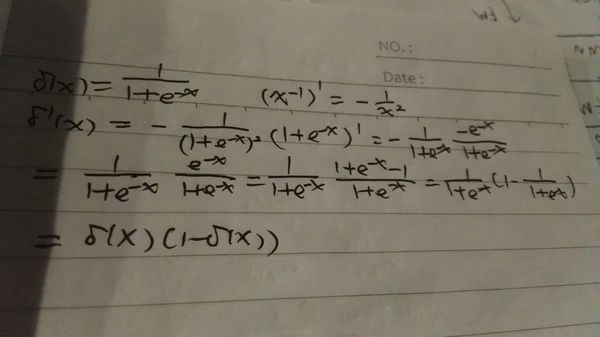 NO.:
Date:
δ(x) = 1/(1+e^-x)    (x^-1)' = - 1/x²
δ'(x) = - 1/(1+e^-x)² (1+e^-x)' = - 1/(1+e^-x) -e^-x/(1+e^-x)
= 1/(1+e^-x) e^-x/(1+e^-x) = 1/(1+e^-x) (1+e^-x-1)/(1+e^-x) = 1/(1+e^-x) (1- 1/(1+e^-x))
= δ(x)(1-δ(x))